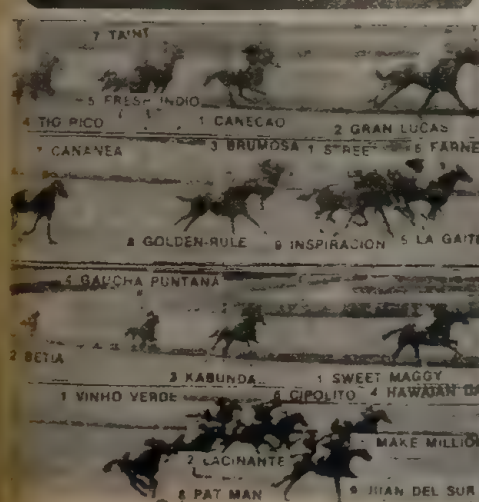 7 TAINT
5 FRESH INDIO
4 TIG RICO 1 CANECAO 2 GRAN LUCAS
7 CANANEA 3 BRUMOSA 1 STREET 6 FARNE
8 GOLDEN-RULE 9 INSPIRACION 5 LA GAITE
5 GAUCHA PUNTANA
2 BETIA
3 KABUNDA 1 SWEET MAGGY
1 VINHO VERDE 6 CIPOLITO 4 HAWAIAN DA
MAKE MILLION
2 LACINANTE
8 PAT MAN 9 JUAN DEL SUR